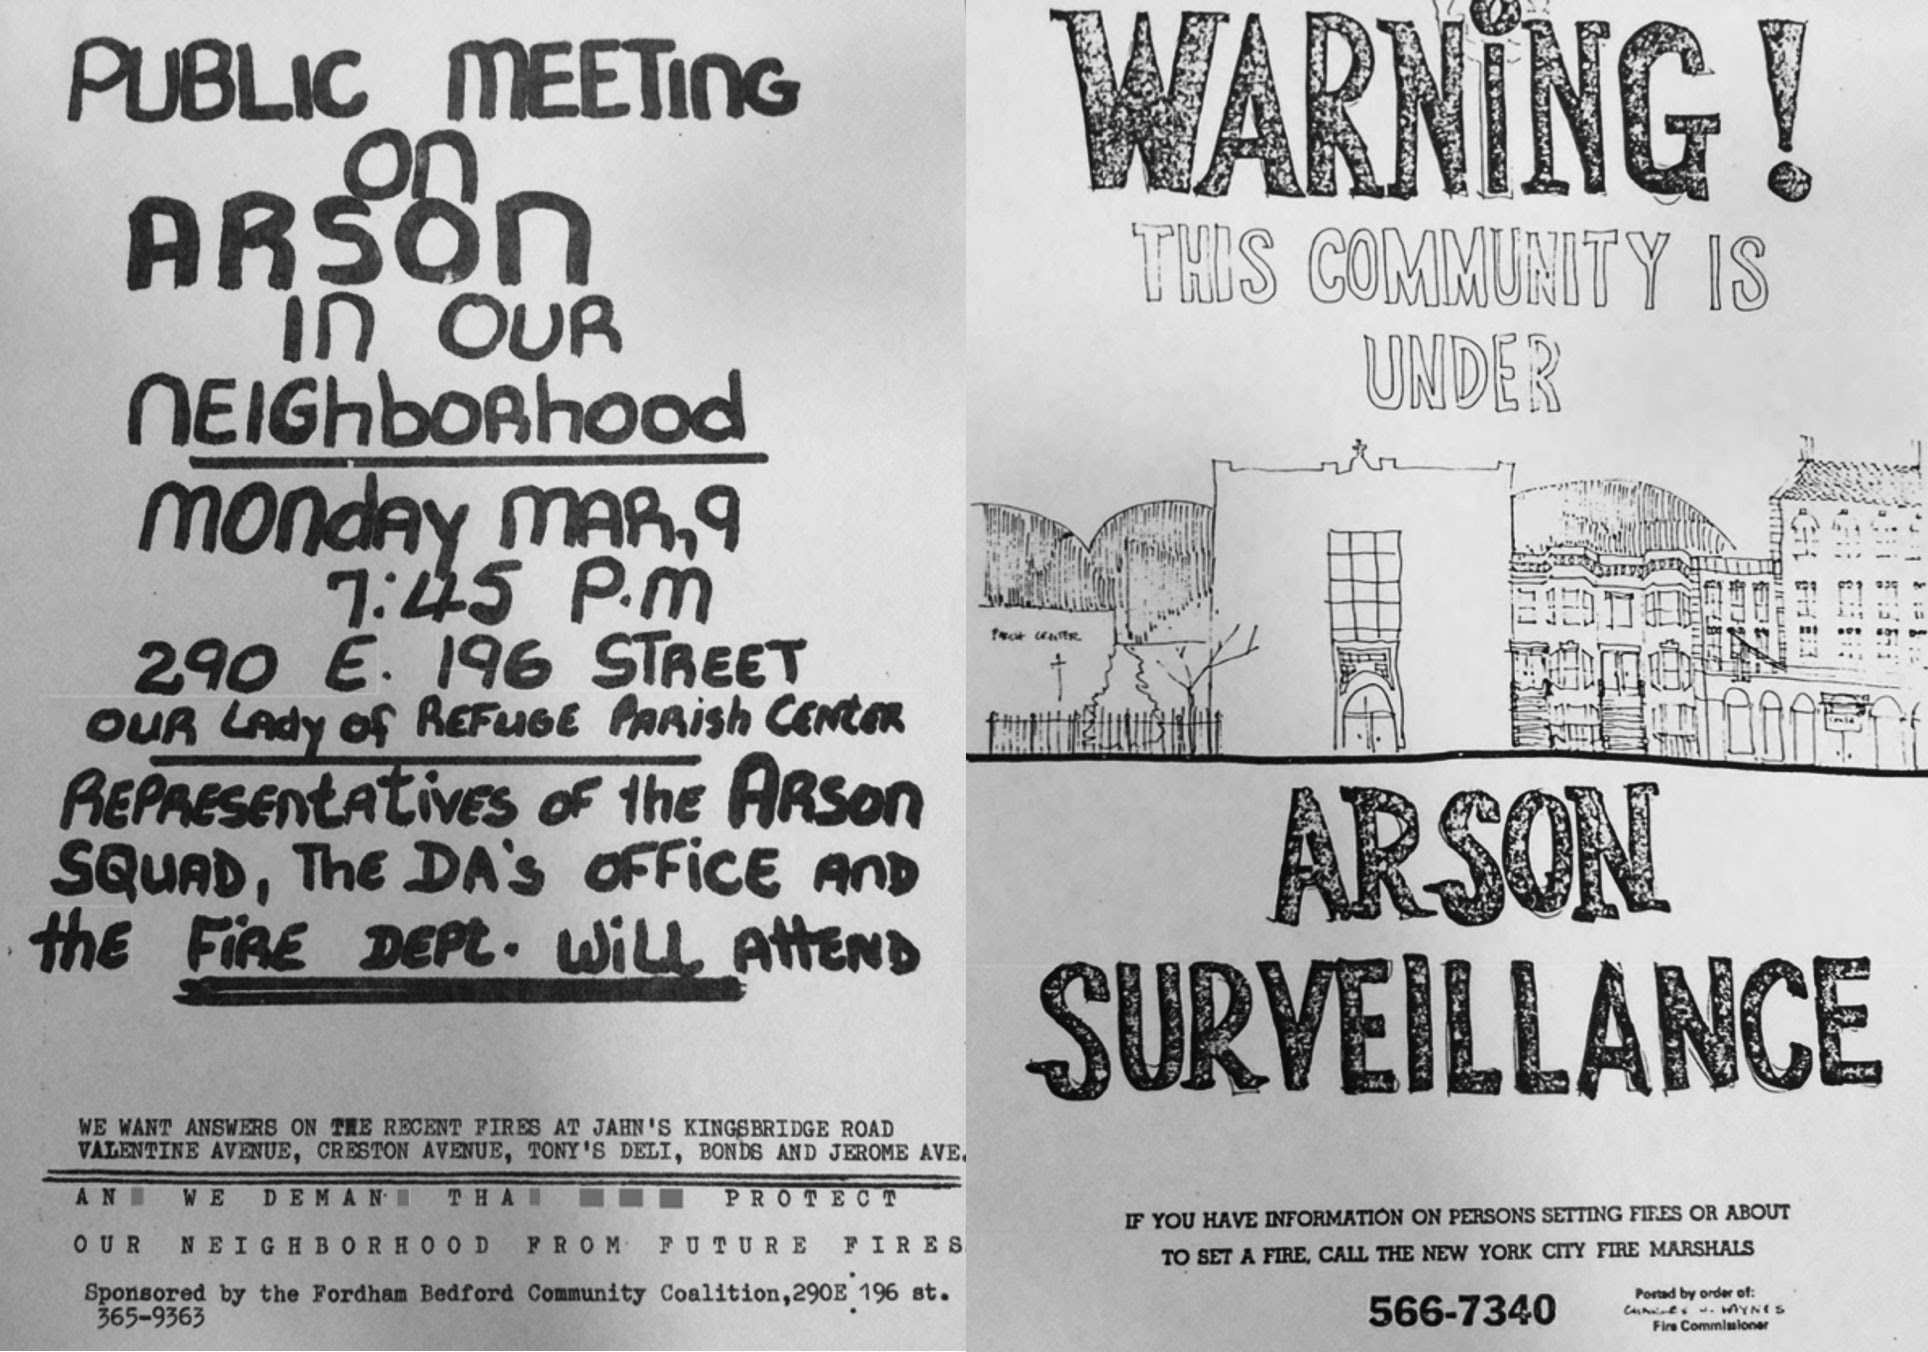 PUBLIC MEETING
ON
ARSON
IN OUR
NEIGHborhood
MONDAY MAR, 9
7:45 P.M
290 E. 196 STREET
OUR LADY of REFUGE PARISH CENTER
REPRESENTATIVES OF the ARSON
SQUAD, The DA's OFFICE AND
the FIRE DEPT. WILL ATTEND
WE WANT ANSWERS ON THE RECENT FIRES AT JAHN'S KINGSBRIDGE ROAD
VALENTINE AVENUE, CRESTON AVENUE, TONY'S DELI, BONDS AND JEROME AVE.
AN WE DEMAN THA PROTECT
OUR NEIGHBORHOOD FROM FUTURE FIRES
Sponsored by the Fordham Bedford Community Coalition,290E 196 st.
365-9363
WARNING!
THIS COMMUNITY IS
UNDER
PARISH CENTER
ARSON
SURVEILLANCE
IF YOU HAVE INFORMATION ON PERSONS SETTING FIRES OR ABOUT
TO SET A FIRE, CALL THE NEW YORK CITY FIRE MARSHALS
566-7340
Posted by order of:
CHARLES J. HYNES
Fire Commissioner